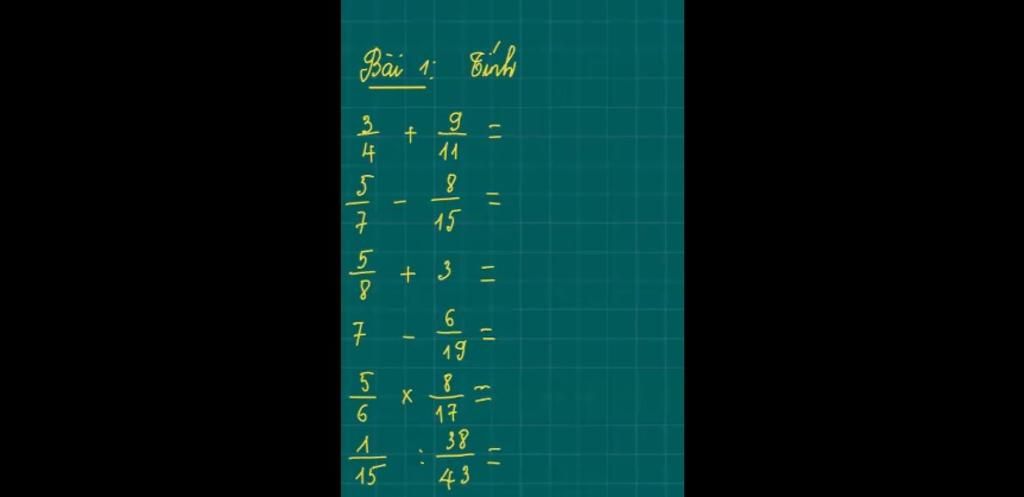 Bài 1: Tính
3/4 + 9/11 =
5/7 - 8/15 =
5/8 + 3 =
7 - 6/19 =
5/6 x 8/17 =
1/15 : 38/43 =